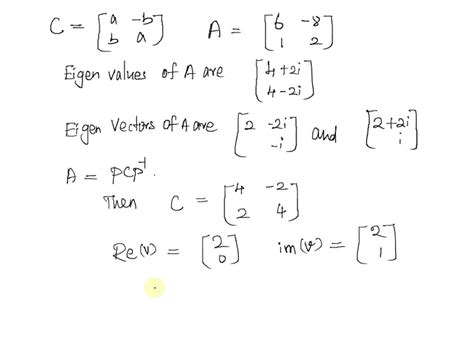 C = [a -b; b a] A = [6 -8; 1 2]
Eigen values of A are [4+2i; 4-2i]
Eigen Vectors of A are [2 -2i; -i] and [2+2i; i]
A = PCP⁻¹.
Then C = [4 -2; 2 4]
Re(v) = [2; 0] im(v) = [2; 1]